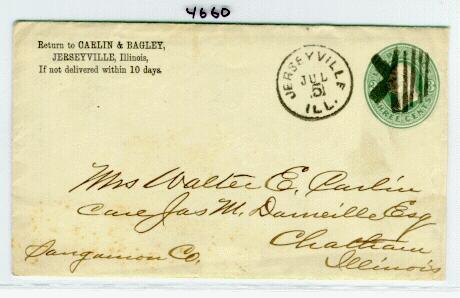 4660
Return to CARLIN & BAGLEY,
JERSEYVILLE, Illinois,
If not delivered within 10 days.
JERSEYVILLE
JUL
ILL.
THREE CENTS
Mrs Walter E. Carlin
Care Jas M. Darneille Esq
Chatham
Sangamon Co. Illinois